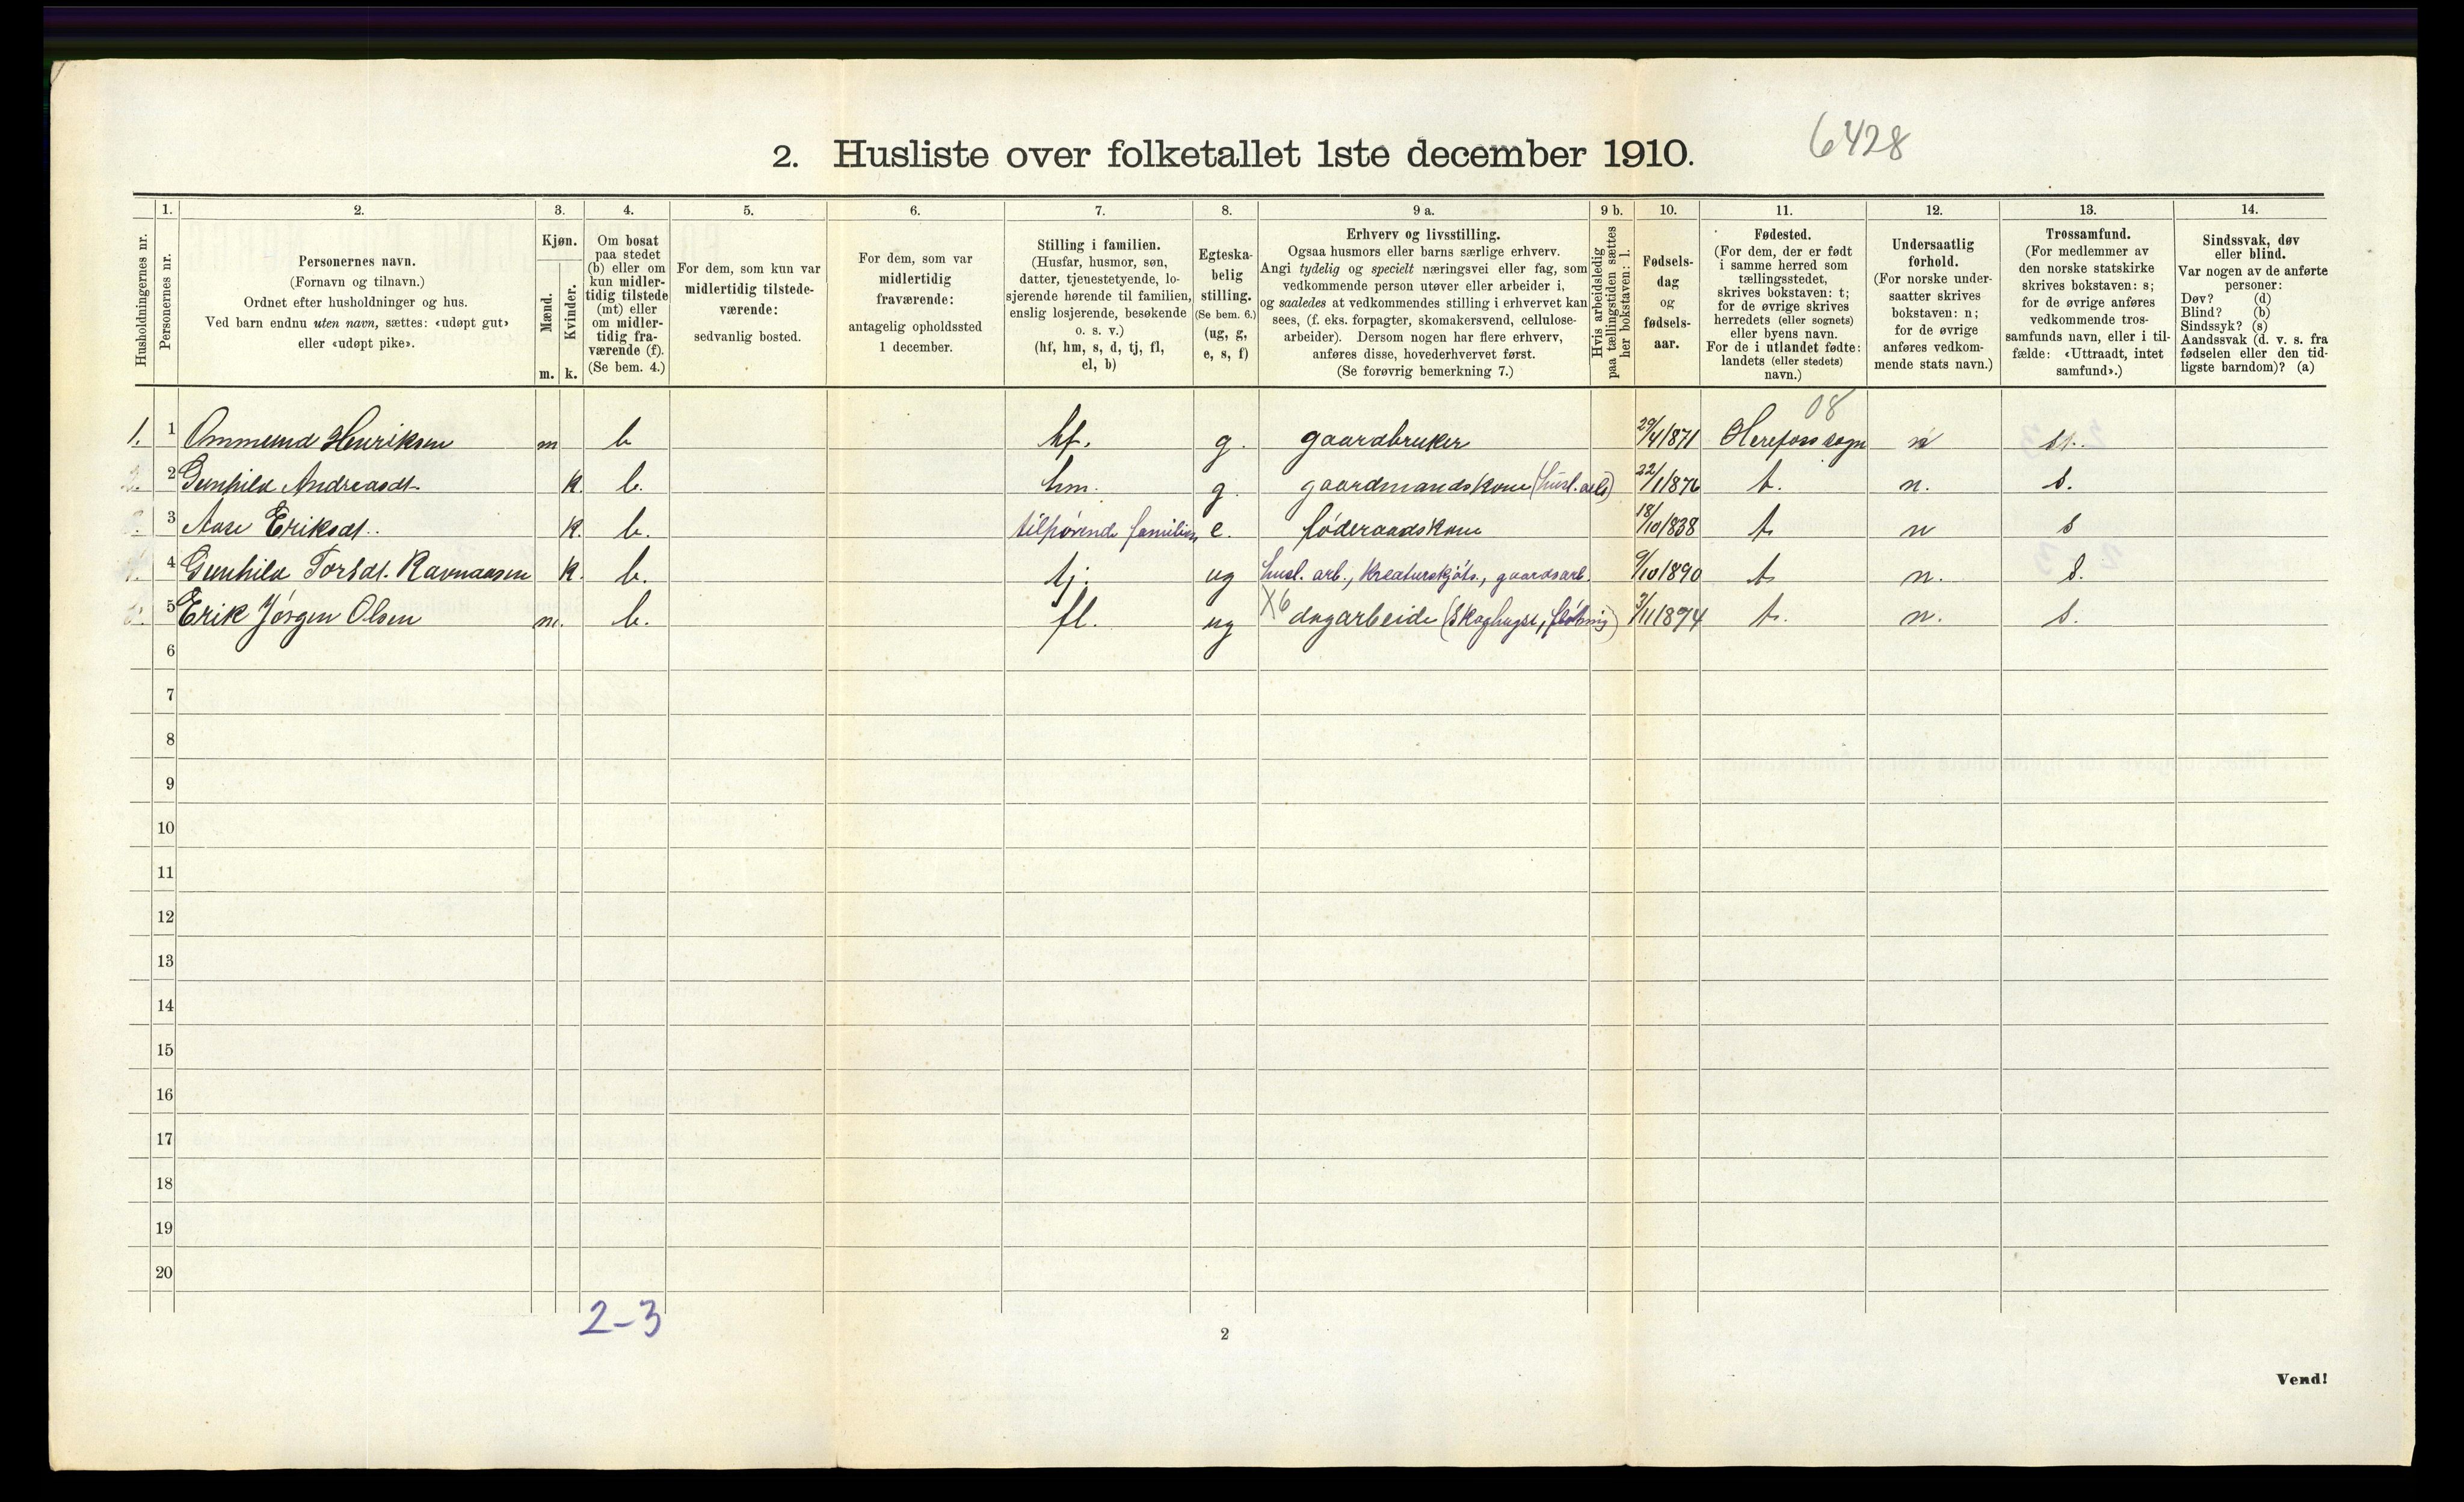 2. Husliste over folketallet 1ste december 1910.
6428
Husholdningernes nr.
1.
Personernes nr.
2.
Personernes navn.
(Fornavn og tilnavn.)
Ordnet efter husholdninger og hus.
Ved barn endnu uten navn, sættes: «udøpt gut»
eller «udøpt pike».
3.
Kjøn.
Mænd.
Kvinder.
m. k.
4.
Om bosat
paa stedet
(b) eller om
kun midler-
tidig tilstede
(mt) eller
om midler-
tidig fra-
værende (f).
(Se bem. 4.)
5.
For dem, som kun var
midlertidig tilstede-
værende:
sedvanlig bosted.
6.
For dem, som var
midlertidig
fraværende:
antagelig opholdssted
1 december.
7.
Stilling i familien.
(Husfar, husmor, søn,
datter, tjenestetyende, lo-
sjerende hørende til familien,
enslig losjerende, besøkende
o. s. v.)
(hf, hm, s, d, tj, fl,
el, b)
8.
Egteska-
belig
stilling.
(Se bem. 6.)
(ug, g,
e, s, f)
9 a.
Erhverv og livsstilling.
Ogsaa husmors eller barns særlige erhverv.
Angi tydelig og specielt næringsvei eller fag, som
vedkommende person utøver eller arbeider i,
og saaledes at vedkommendes stilling i erhvervet kan
sees, (f. eks. forpagter, skomakersvend, cellulose-
arbeider). Dersom nogen har flere erhverv,
anføres disse, hovederhvervet først.
(Se forøvrig bemerkning 7.)
9 b.
Hvis arbeidsledig
paa tællingstiden sættes
her bokstaven: l.
10.
Fødsels-
dag
og
fødsels-
aar.
11.
Fødested.
(For dem, der er født
i samme herred som
tællingsstedet,
skrives bokstaven: t;
for de øvrige skrives
herredets (eller sognets)
eller byens navn.
For de i utlandet fødte:
landets (eller stedets)
navn.)
12.
Undersaatlig
forhold.
(For norske under-
saatter skrives
bokstaven: n;
for de øvrige
anføres vedkom-
mende stats navn.)
13.
Trossamfund.
(For medlemmer av
den norske statskirke
skrives bokstaven: s;
for de øvrige anføres
vedkommende tros-
samfunds navn, eller i til-
fælde: «Uttraadt, intet
samfund».)
14.
Sindssvak, døv
eller blind.
Var nogen av de anførte
personer:
Døv? (d)
Blind? (b)
Sindssyk? (s)
Aandssvak (d. v. s. fra
fødselen eller den tid-
ligste barndom)? (a)
08
1. 1 Ommund Henriksen m b hf. g. gaardbruker 29/4 1871 Herefoss sogn n s.
2 Gunhild Andreasdt. k. b. hm. g. gaardmandskone (husl. arb) 22/1 1876 t. n. s.
3 Aase Eriksdt. k. b. tilhørende familien e. føderaadskone 18/10 1838 t. n s
4 Gunhild Torsdt. Ravnaasen k. b. tj. ug husl. arb., kreaturskjøts., gaardsarb. 9/10 1890 t. n. s.
5 Erik Jørgen Olsen m. b. fl. ug X6 dagarbeide (skoghugst, fløtning) 3/11 1894 t. n. s.
6
7
8
9
10
11
12
13
14
15
16
17
18
19
20
2-3
2
Vend!